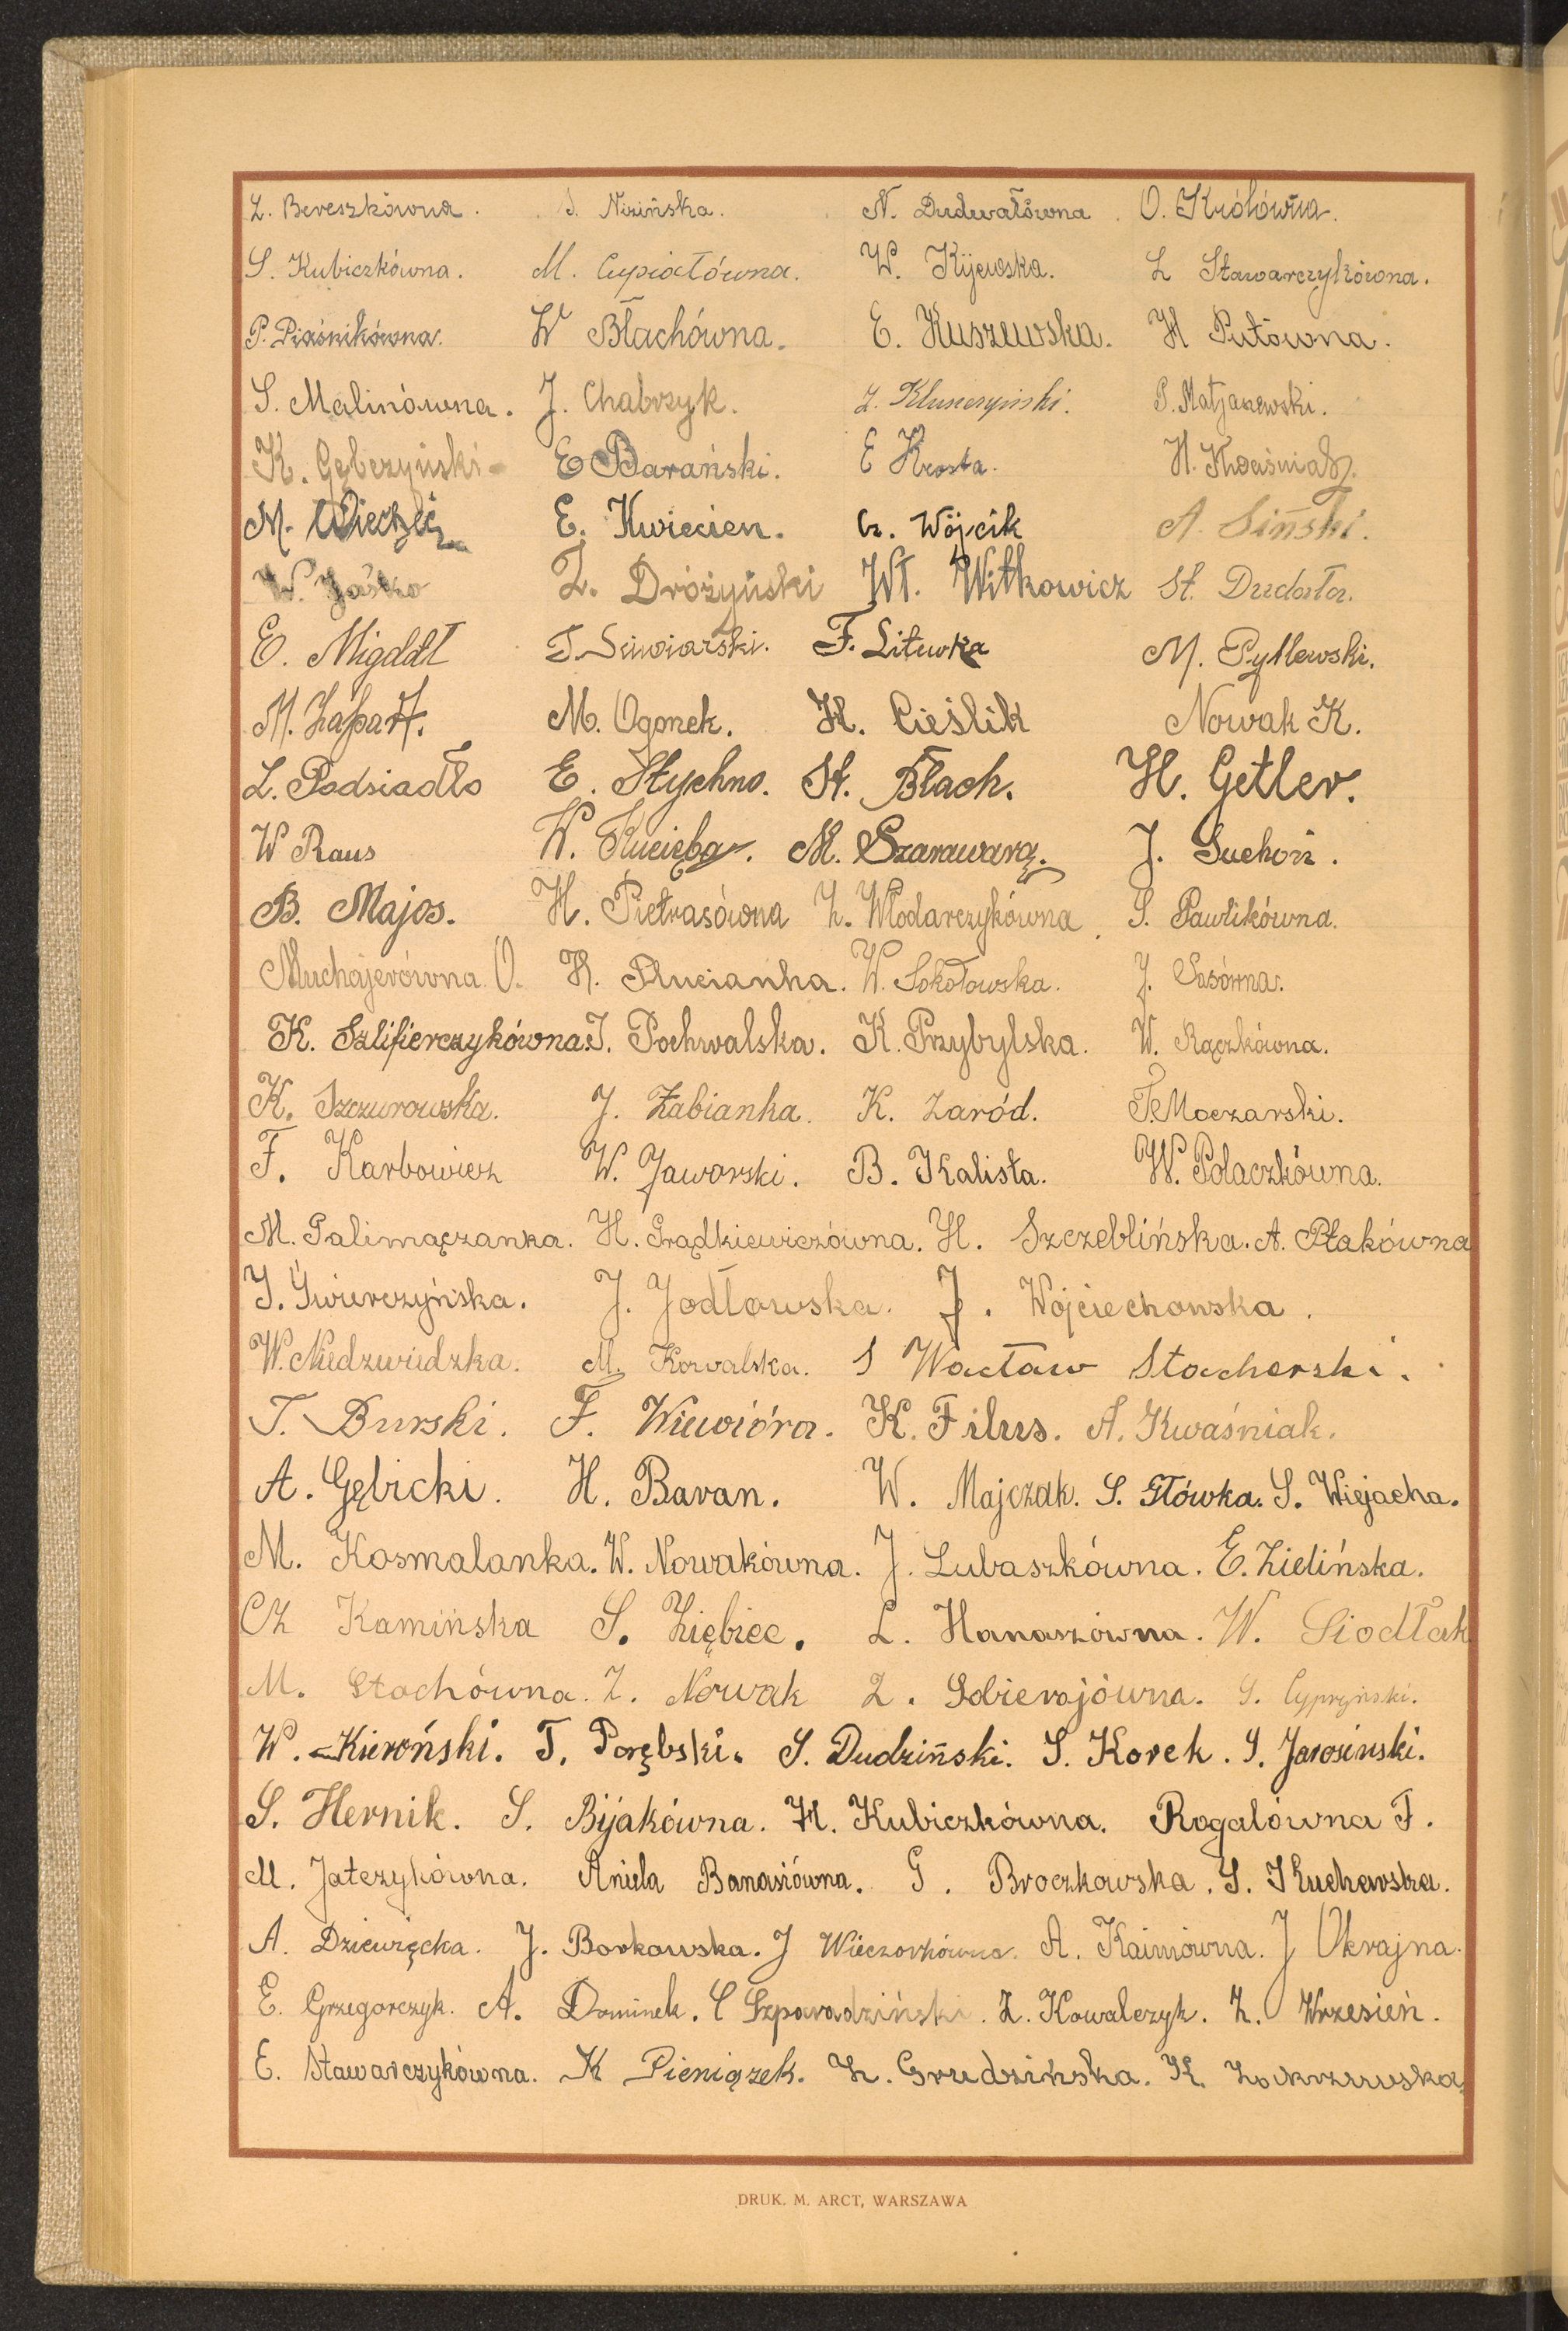 Z. Bereszkówna. J. Nizińska. N. Dudwałówna O. Królówna.
S. Kubiczkówna. M. Cupiałówna. W. Kijewska. Z Stawarczykówna.
P. Piaśnikówna. W Błachówna. E. Kuszewska. H Putówna.
S. Malinówna. J. Chabrzyk. Z. Kluszczyński. P. Matjaszewski.
K. Gębczyński E Barański. E Krosta. H. Kwaśniak.
M. E. Kwiecien. Cz. Wójcik A. Siński.
W. Jaśko Z. Dróżyński Wł. Witkowicz St. Dudała.
E. Migdał T. Siwiarski. F. Litewka M. Pytlewski.
M. Łapaff. M. Ogonek. H. Cieślik Nowak K.
L. Podsiadło E. Stychno. St. Błach. H. Getler.
W Raus W. Kucięba. M. Szarawara. J. Suchoń.
B. Majos. H. Pietrasówna Z. Włodarczykówna S. Pawlikówna.
Muchajerówna O. H. Plucianka. W. Sokołowska. J. Sasówna.
K. Szlifierczykówna. J. Pochwalska. K. Przybylska. W. Rączkówna.
K. Szczurowska. J. Żabianka. K. Zaród. T. Moczarski.
F. Karbowicz W. Jaworski. B. Kalista. W. Polaczkówna.
M. Palimączanka. H. Grądkiewiczówna. H. Szczeblińska. A. Ptakówna
J. Świerczyńska. J. Jodłowska. J. Wojciechowska.
W. Niedzwiedzka. M. Kowalska. S Wacław Stacherski.
T. Burski. F. Wiewióra. K. Filus. A. Kwaśniak.
A. Gębicki. H. Baran. W. Majczak. S. Główka. S. Wiejacha.
M. Kosmalanka. W. Nowakówna. J. Lubaszkówna. E. Zielińska.
Cz Kamińska S. Ziębiec. L. Hanaszówna. W. Siodłak
M. Stachówna. Z. Nowak Z. Sobierajówna. S. Cypryński.
W. Kieroński. T. Porębski. S. Dudziński. S. Korek. S. Jarosiński.
S. Hernik. S. Bijakówna. H. Kubiczkówna. Rogalówna F.
M. Jatczykówna. Aniela Banasiówna. G. Broczkowska. S. Kuchewska.
A. Dziewięcka. J. Borkowska. J Wieczorkówna. A. Kaimówna. J Ukrajna.
E. Grzegorczyk. A. Dominek. C Szparadziński. Z. Kowalczyk. Z. Wrzesień.
E. Stawarczykówna. K Pieniązek. Z. Grudzińska. K. Zakrzewska.
DRUK. M. ARCT, WARSZAWA